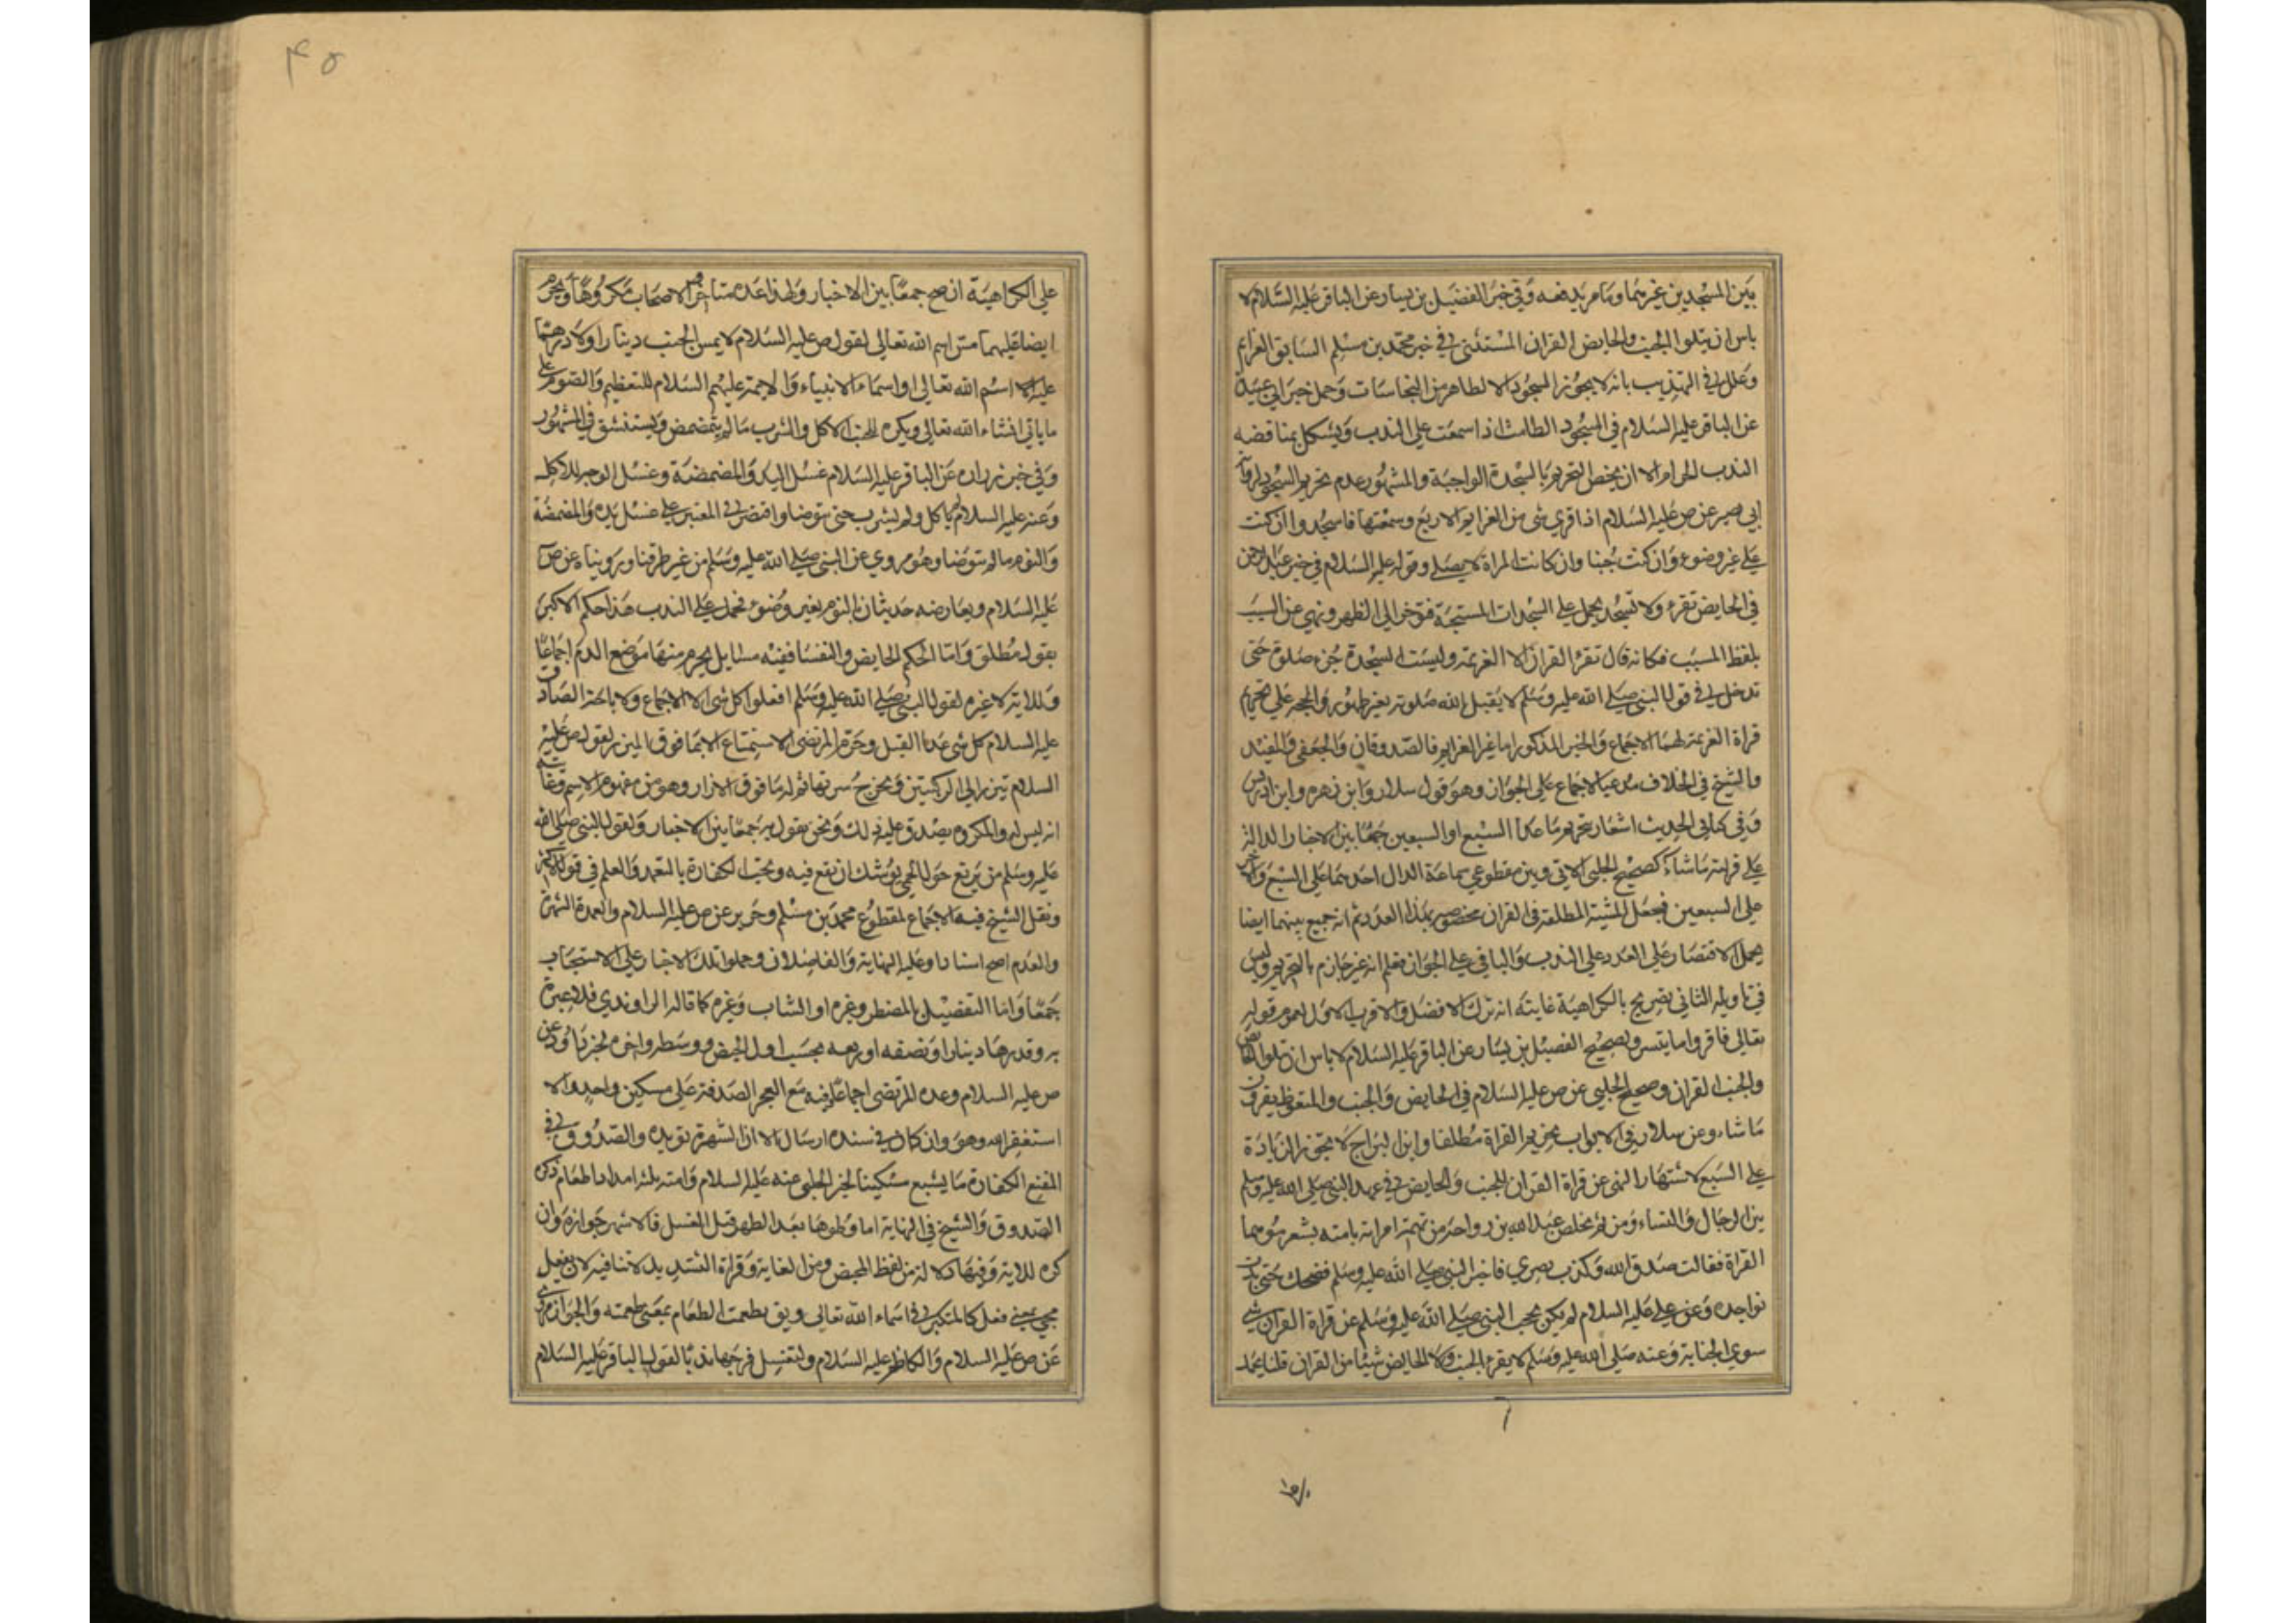 بين المسجدين غيرهما وما مر يدفعه وفي خبر الفضيل بن يسار عن الباقر عليه السلام لا
باس ان يتلوا الجنب والحايض القران المستثنى في خبر محمد بن مسلم السابق العزايم
وعلل في التهذيب بانه لا يجوز السجود الا لطاهر من النجاسات وحمل خبر ابي عبيدة
عن الباقر عليه السلام في السجود الطامث اذا سمعت على الندب ويشكل بمناقضه
الندب الحرام الا ان يخص التحريم بالسجدة الواجبة والمشهور عدم تحريم السجود لرواية
ابي بصير عن ص عليه السلام اذا قري شي من العزايم الاربع وسمعتها فاسجد وان كنت
على غير وضوء وان كنت جنبا وان كانت المراة لا يصلي وقوله عليه السلام في خبر عبد الرحمن
في الحايض تقرء ولا تسجد يحمل على السجدات المستحبة فتوخر الى الطهر ونهي عن السبب
بلفظ المسبب فكانه قال تقرء القران الا العزيمة وليست السجدة جزء صلوة حتى
تدخل في قول النبي صلى الله عليه وسلم لا يقبل الله صلوة بغير طهور والحجر على تحريم
قراة العزيمة لهما الاجماع والخبر المذكور اما غير العزايم فالصدوقان والجعفي والمفيد
والشيخ في الخلاف مدعيا الاجماع على الجواز وهو قول سلار وابن زهره وابن ادريس
وفي كتابي الحديث اشعار بتحريم ما عدا السبع او السبعين جمعا بين الاخبار الدالة
على قراءة ما شاء كصحيح الحلبي الاتي وبين مقطوعي سماعة الدال احدهما على السبع والاخر
على السبعين فجعل المشية المطلقة في القران مخصوصه بهذا العدد ثم انه جمع بينهما ايضا
بحمل الاقتصار على العدد على الندب والباقي على الجواز فعلم انه غير جازم بالتحريم وليس
في تاويله الثاني تصريح بالكراهية غايته انه ترك الافضل والاقرب الاول لعموم قوله
تعالى فاقروا ما يتسر وبصحيح الفضيل بن يسار عن الباقر عليه السلام لا باس ان تتلوا الحايض
والجنب القران وصحيح الحلبي عن ص عليه السلام في الحايض والجنب والمتغوط يقرون
ما شاء وعن سلار في الابواب تحريم القراة مطلقا وابن البراج لا يجوز الزيادة
على السبع لاشتهار النهي عن قراة القران للجنب والحايض في عهد النبي صلى الله عليه وسلم
بين الرجال والنساء ومن ثم تخلص عبد الله بن رواحة من تهمة امراته بامته بشعر موهما
القراة فقالت صدق الله وكذب بصري فاخبر النبي صلى الله عليه وسلم فضحك حتى بدت
نواجده وعن علي عليه السلام لم يكن يحجب النبي صلى الله عليه وسلم عن قراة القران شي
سوى الجنابة وعنه صلى الله عليه وسلم لا يقرء الجنب ولا الحايض شيئا من القران قلنا يحمل
٤٥
على الكراهية ان صح جمعا بين الاخبار ولهذا عده متاخروا الاصحاب مكروها ويحرم
ايضا عليهما مس اسم الله تعالى لقول ص عليه السلام لا يمس الجنب دينارا ولا درهما
عليه اسم الله تعالى او اسماء الانبياء والايمة عليهم السلام للتعظيم والصوم على
ما ياتي انشاء الله تعالى ويكره للجنب الاكل والشرب ما لم يتمضمض ويستنشق في المشهور
وفي خبر زراره عن الباقر عليه السلام غسل اليد والمضمضة وغسل الوجه للاكل
وعنه عليه السلام لم ياكل ولم يشرب حتى يتوضا واقتصر في المعتبر على غسل يده والمضمضة
والنوم ما لم يتوضا وهو مروي عن النبي صلى الله عليه وسلم من غير طرقنا وروينا عن ص
عليه السلام ويعارضه حديثان بالنوم بغير وضوء فحمل على الندب هذا حكم الاكبر
بقول مطلق واما الحكم الحايض والنفسا ففيه مسايل يحرم منها موضع الدم اجماعا
وللاية لا غيره لقول النبي صلى الله عليه وسلم افعلوا كل شي الا الجماع ولاباحة الصادق
عليه السلام كل شي عدا القبل وحرم المرتضى الاستمتاع الا بما فوق الميزر لقول ص عليه
السلام تتزر الى الركبتين وتخرج سرتها ثم له ما فوق الازار وهو من مفهوم الاسم وغايته
انه ليس له والمكروه يصدق عليه ذلك ونحن نقول به جمعا بين الاخبار ولقول النبي صلى الله
عليه وسلم من يرتع حول الحمى يوشك ان يقع فيه وتجب الكفارة بالتعمد والعلم في قول الاكثر
ونقل الشيخ فيه الاجماع لمقطوع محمد بن مسلم وحريز عن ص عليه السلام والعمدة الشهرة
والعدم اصح اسنادا وعليه النهاية والفاضلان وحملوا تلك الاخبار على الاستحباب
جمعا واما التفصيل بالمضطر وغيره او الشاب وغيره كما قاله الراوندي فلا عبرة
به وقدرها دينار او نصفه او ربعه بحسب اول الحيض ووسطه واخره لخبر داود عن
ص عليه السلام وعده المرتضى اجماعا وفيه مع العجز الصدقة على مسكين واحد والا
استغفر الله وهو وان كان في سنده ارسال الا ان الشهرة تويده والصدوق في
المقنع الكفارة ما يشبع مسكينا لخبر الحلبي عنه عليه السلام وامته بثلثه امداد طعام ذكره
الصدوق والشيخ في النهاية اما وطوها بعد الطهر قبل الغسل فالاشهر جوازه وان
كره للاية وفيها دلالة من لفظ المحيض ومن الغاية وقراة التشديد لا تنافيه لان يفعل
يجي بمعنى فعل كالمتكبر في اسماء الله تعالى ويق تطعمت الطعام بمعنى طعمته والجواز مروي
عن ص عليه السلام والكاظم عليه السلام ولتغسل فرجها ندبا لقول الباقر عليه السلام